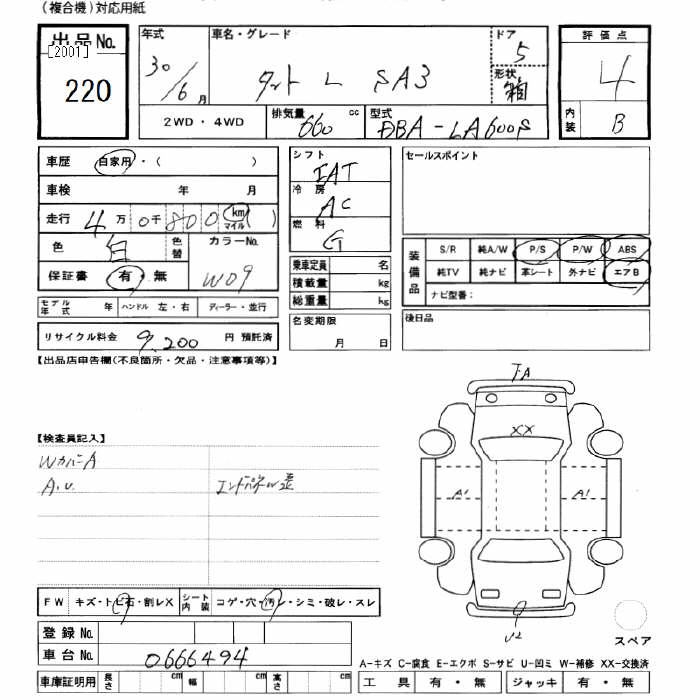 (複合機)対応用紙
出品No.
[2001]
220
年式
30/6月
車名・グレード
タント L SA3
ドア
5
形状
箱
評価点
4
内装
B
2WD・4WD
排気量
660 cc
型式
DBA-LA600S
車歴 自家用・( )
車検 年 月
走行 4万0千800 km マイル ( )
色 白 色替 カラーNo.
W09
保証書 有・無
モデル年式 年 ハンドル 左・右 ディーラー・並行
リサイクル料金 9,200 円 預託済
シフト
IAT
冷房
AC
燃料
G
乗車定員 名
積載量 kg
総重量 kg
名変期限
月 日
セールスポイント
装備品
S/R 純A/W P/S P/W ABS
純TV 純ナビ 革シート 外ナビ エアB
ナビ型番:
後日品
【出品店申告欄(不良箇所・欠品・注意事項等)】
【検査員記入】
WカバーA
A.U.
エンドパネルW歪
FW キズ・トビ石・割レX シート内装 コゲ・穴・汚レ・シミ・破レ・スレ
登録No.
車台No. 0666494
車庫証明用 長さ cm 幅 cm 高さ cm
XX
A1
A1
U2
スペア
A-キズ C-腐食 E-エクボ S-サビ U-凹ミ W-補修 XX-交換済
工具 有・無 ジャッキ 有・無